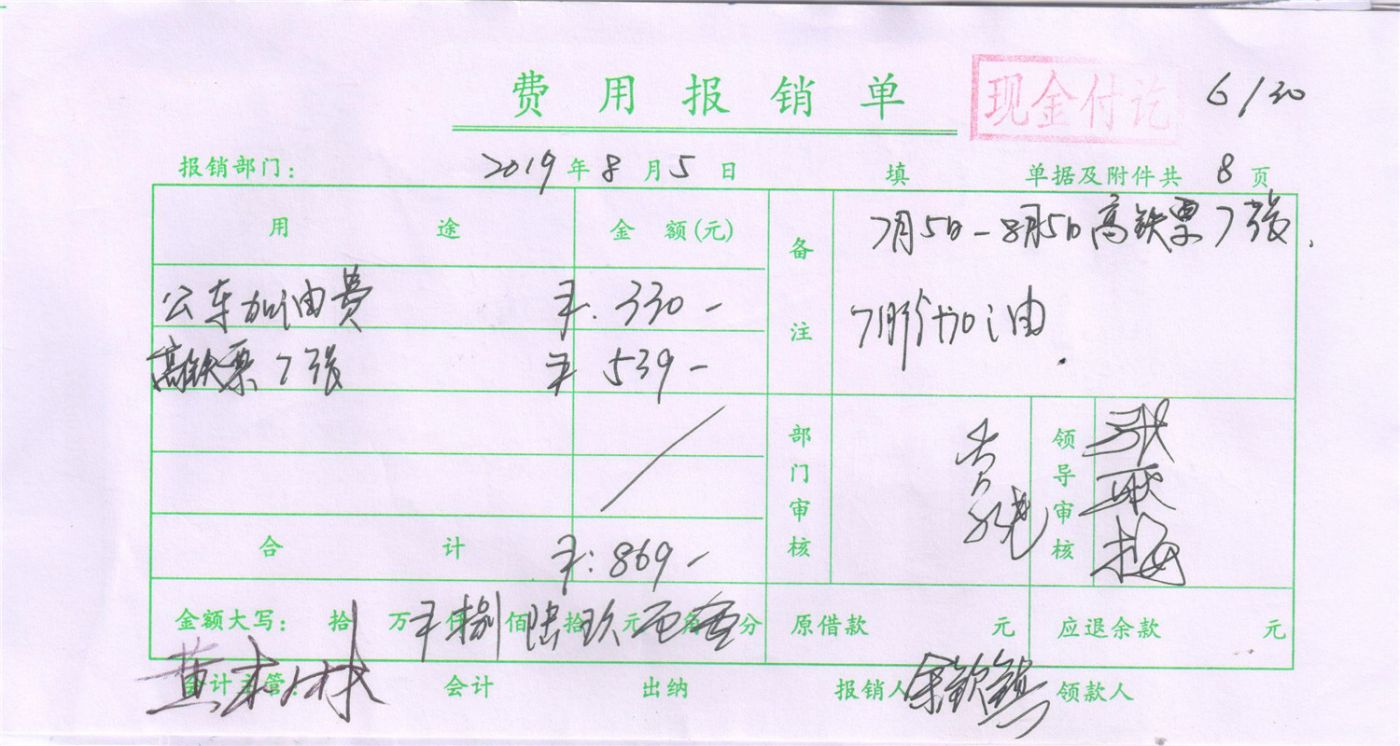 费用报销单
现金付讫
6/30
报销部门: 2019年8月5日 填 单据及附件共8页
用途 金额(元) 备注
7月5日-8月5日高铁票7张.
7月份加油.
公车加油费 ¥:330-
高铁票7张 ¥ 539-
合计 ¥:869-
部门审核
领导审核
金额大写: 拾万¥仟捌佰陆拾玖元零角零分 原借款 元 应退余款 元
会计主管: 会计 出纳 报销人 领款人